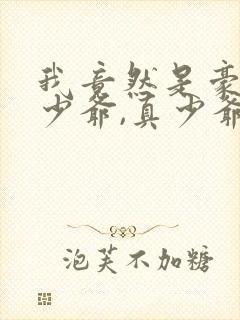 我竟然是豪
少爷,真少爷
泡芙不加糖